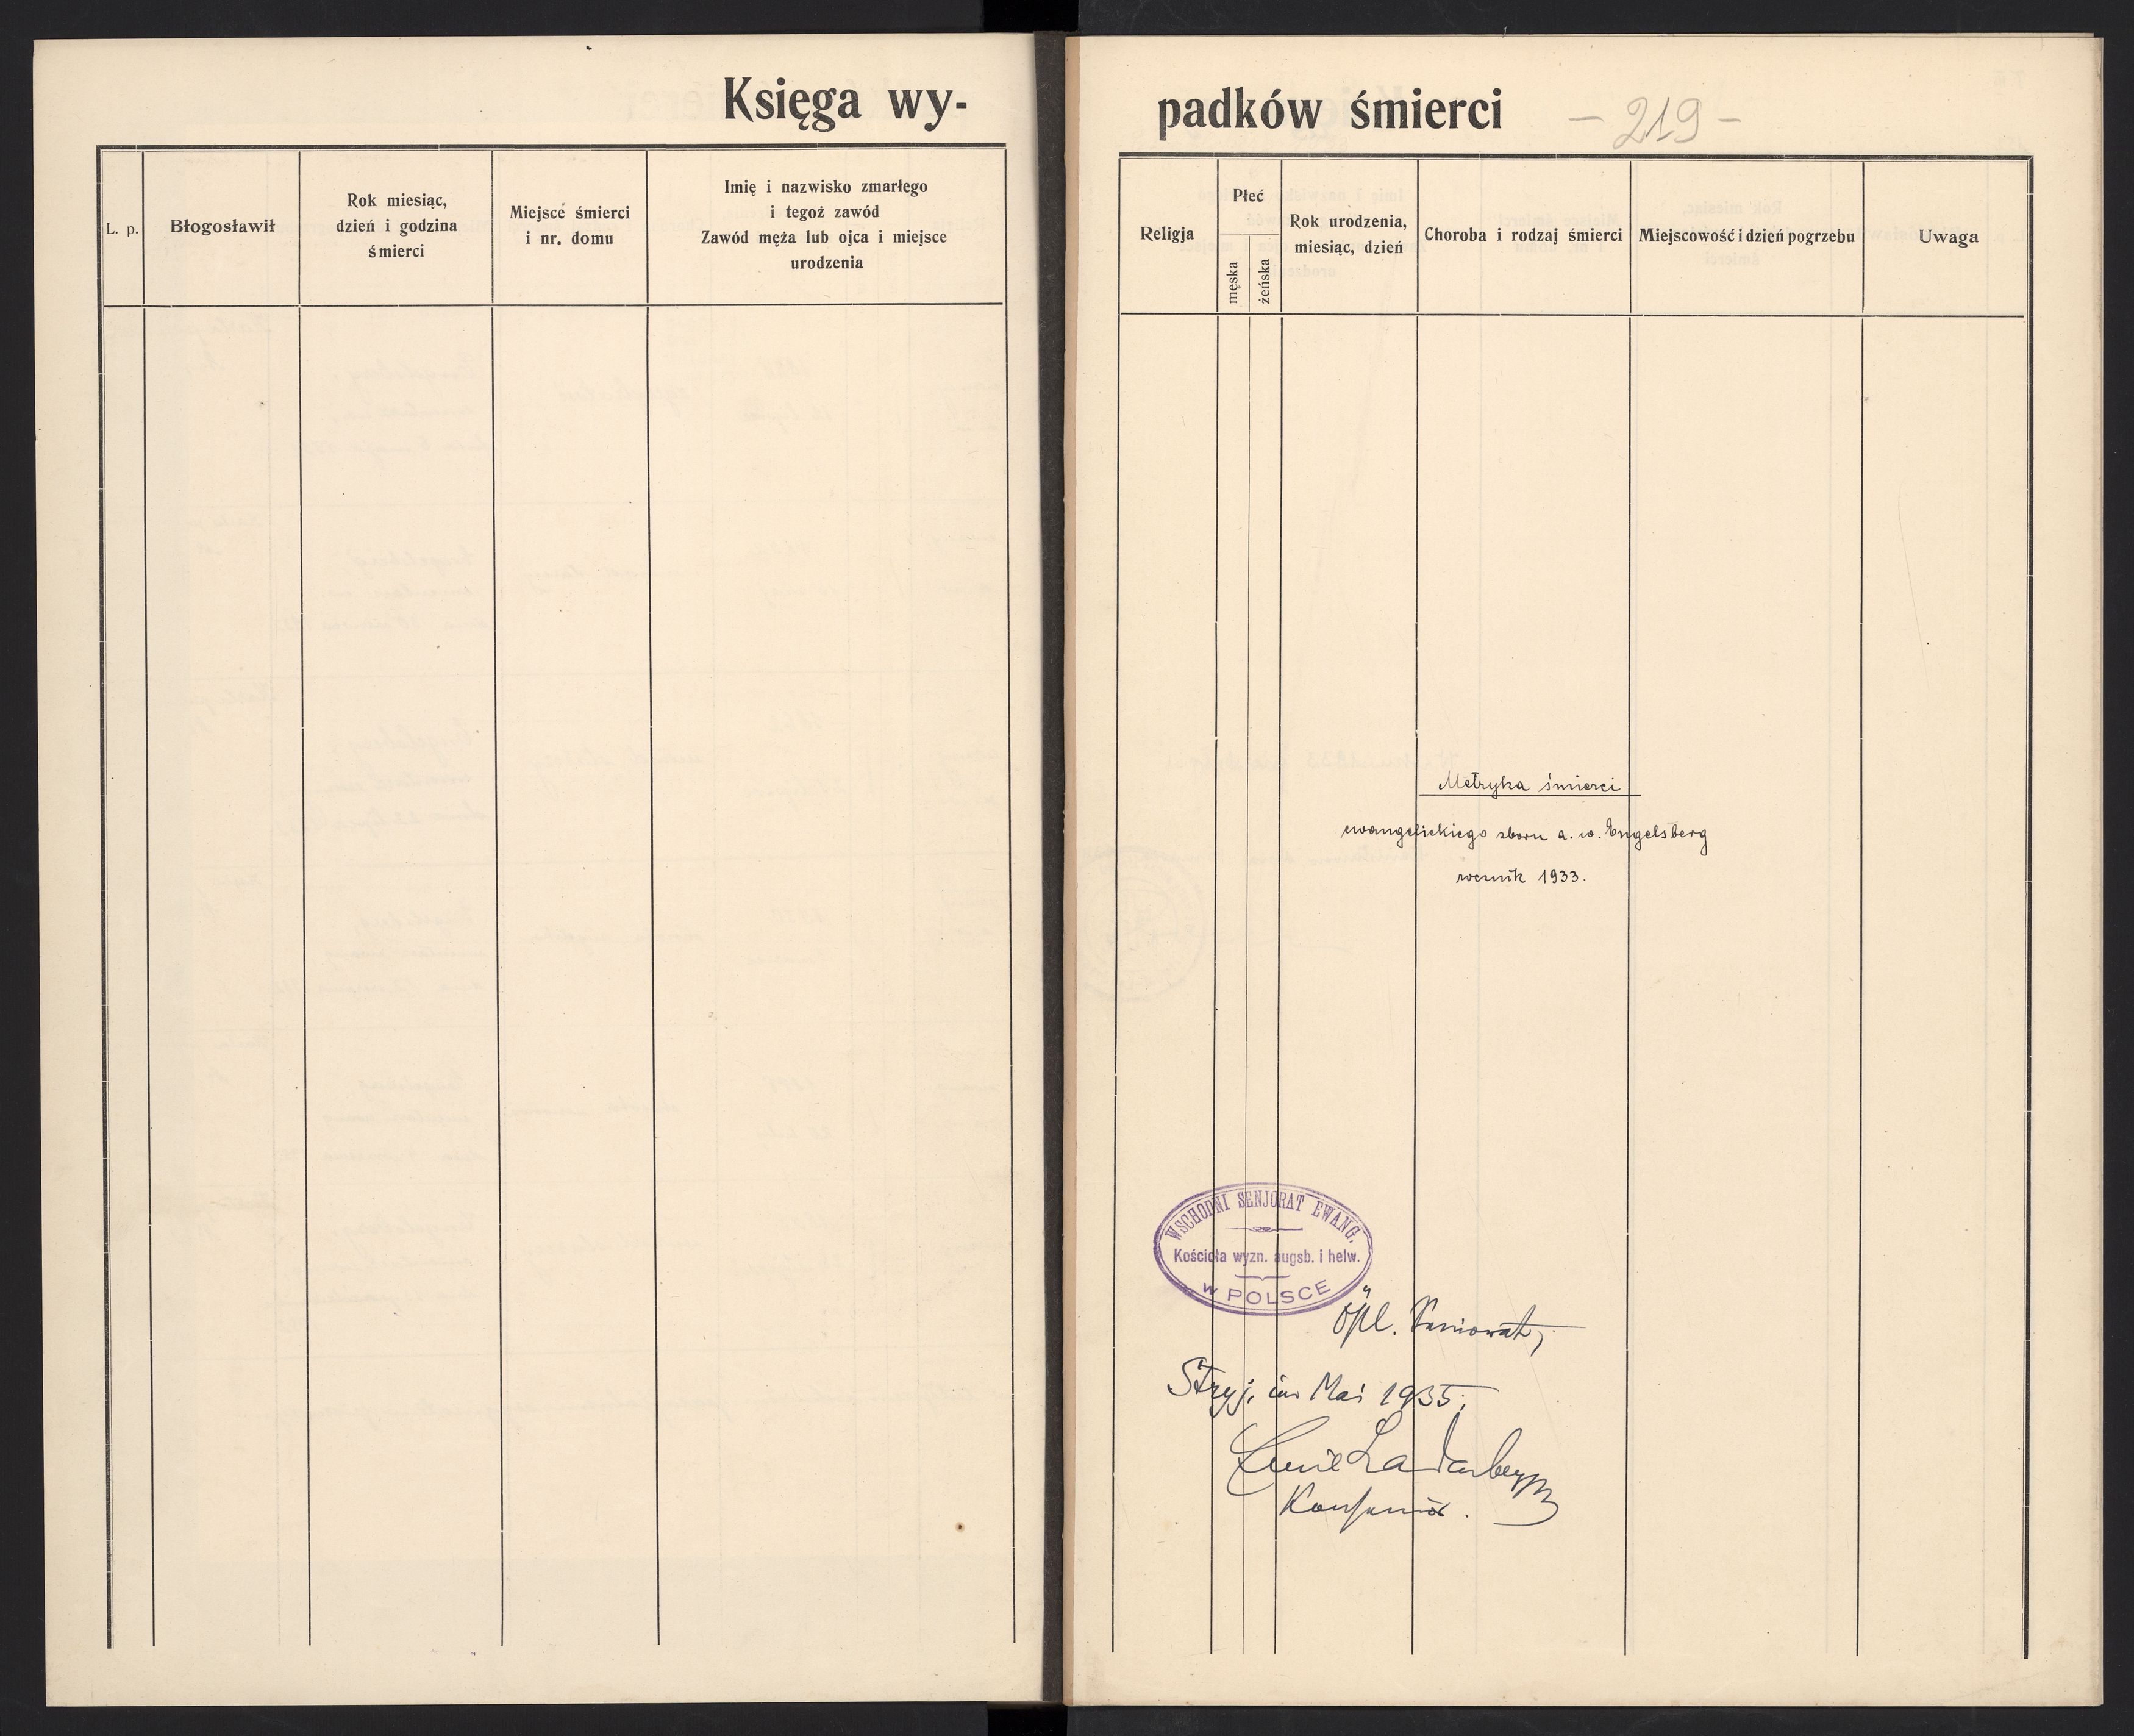 Księga wy-
L. p.
Błogosławił
Rok miesiąc,
dzień i godzina
śmierci
Miejsce śmierci
i nr. domu
Imię i nazwisko zmarłego
i tegoż zawód
Zawód męża lub ojca i miejsce
urodzenia
padków śmierci
- 219 -
Religja
Płeć
męska
żeńska
Rok urodzenia,
miesiąc, dzień
Choroba i rodzaj śmierci
Miejscowość i dzień pogrzebu
Uwaga
Metryka śmierci
ewangelickiego zboru a. w. Engelsberg
rocznik 1933.
WSCHODNI SENJORAT EWANG.
Kościoła wyzn. augsb. i helw.
w POLSCE
Stryj, im Mai 1935.
Emil Ladenberger
Konsenior.